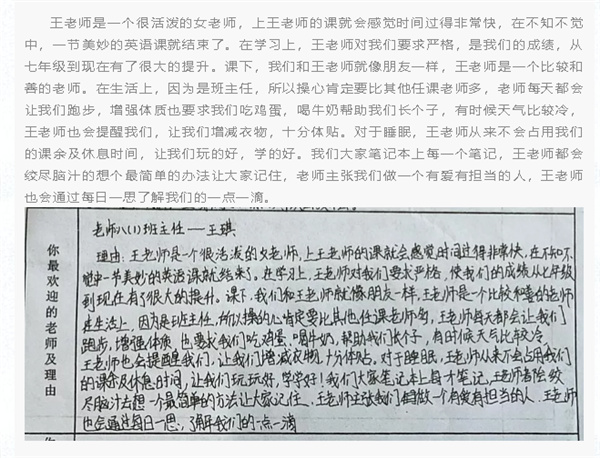 王老师是一个很活泼的女老师，上王老师的课就会感觉时间过得非常快，在不知不觉
中，一节美妙的英语课就结束了。在学习上，王老师对我们要求严格，是我们的成绩，从
七年级到现在有了很大的提升。课下，我们和王老师就像朋友一样，王老师是一个比较和
善的老师。在生活上，因为是班主任，所以操心肯定要比其他任课老师多，老师每天都会
让我们跑步，增强体质也要求我们吃鸡蛋，喝牛奶帮助我们长个子，有时候天气比较冷，
王老师也会提醒我们，让我们增减衣物，十分体贴。对于睡眠，王老师从来不会占用我们
的课余及休息时间，让我们玩的好，学的好。我们大家笔记本上每一个笔记，王老师都会
绞尽脑汁的想个最简单的办法让大家记住，老师主张我们做一个有爱有担当的人，王老师
也会通过每日一思了解我们的一点一滴。
你最欢迎的老师及理由
老师八(1)班主任——王琪
理由：王老师是一个很活泼的女老师，上王老师的课就会感觉时间过得非常快，在不知不
觉中一节美妙的英语课就结束了。在学习上，王老师对我们要求严格，使我们的成绩从七年级
到现在有了很大的提升。课下，我们和王老师就像朋友一样，王老师是一个比较和善的老师
在生活上，因为是班主任，所以操的心肯定要比其他任课老师多，王老师每天都会让我们
跑步，增强体质，也要求我们吃鸡蛋、喝牛奶，帮助我们长个子，有时候天气比较冷
王老师也会提醒我们，让我们增减衣物，十分体贴，对于睡眠，王老师从来不会占用我们
的课余及休息时间，让我们玩玩好，学学好！我们大家笔记本上每个笔记，王老师都会绞
尽脑汁去想一个最简单的方法让大家记住、王老师主张我们做一个有爱有担当的人、王老师
也会通过每日一思，了解我们的一点一滴